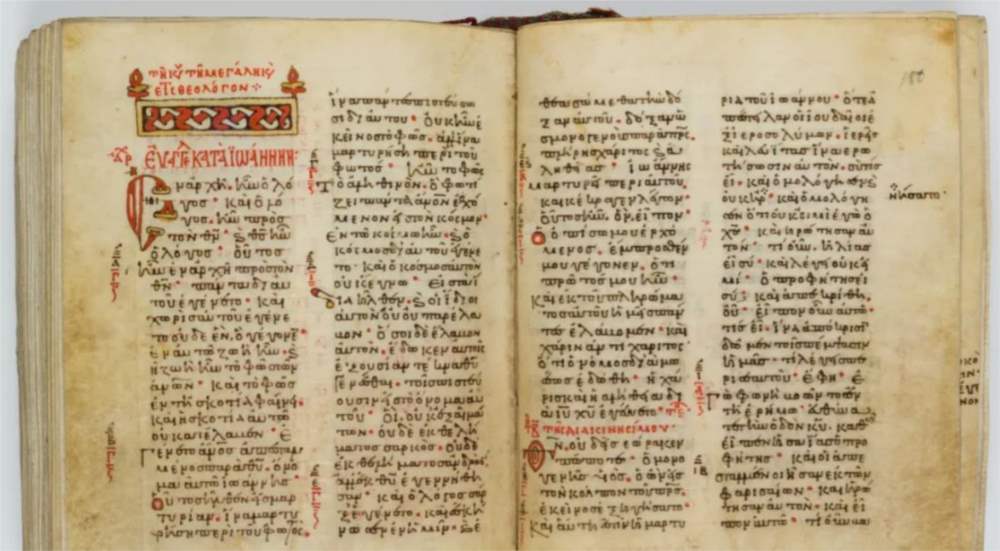 ἐυαγγ κατὰ ἰωάννην
Ἐν ἀρχῆ ἦν ὁ λό
γος· καὶ ὁ λό
γος ἦν πρὸς
τὸν θν· ϗ θς ἦν
ὁ λόγος· οὗτος
ἦν ἐν ἀρχῆ πρὸς τὸν
θν· πάντα δι αὐ
τοῦ ἐγένετο· καὶ
χωρὶς αὐτοῦ ἐγένε
το οὐδὲ ἕν. ὃ γέγονε
ἐν αὐτῶ ζωὴ ἦν· ϗ
ἡ ζωὴ ἦν τὸ φῶς τῶν
ἀνων· καὶ τὸ φῶς
ἐν τῆ σκοτία φαίνει·
καὶ ἡ σκοτία αὐτὸ
οὐ κατέλαβεν· Ἐ
γένετο ανος ἀπεσταλ
μένος παρὰ θυ· ὄνο
μα αὐτῶ ἰωάννης·
Οὗτος ἦλθεν εἰς μαρ
τυρίαν· ἵνα μαρτυ
ρήση περὶ τοῦ φωτός·
ἵνα πάντες πιστεύσω
σι δι αὐτοῦ· οὐκ ἦν ἐ
κεῖνος τὸ φῶς. ἀλλ ἵνα
μαρτυρήση περὶ τοῦ
φωτός· ἦν τὸ φῶς
Τὸ ἀληθινόν. ὃ φωτί
ζει πάντα ἄνον ἐρχό
μενον εἰς τὸν κόσμον·
Ἐν τῶ κόσμω ἦν. ϗ ὁ
κόσμος δι αὐτοῦ ἐγένε
το· καὶ ὁ κόσμος αὐτὸν
οὐκ ἔγνω· Εἰς τὰ ἴ
δια ἦλθεν· ϗ οἱ ἴδιοι
αὐτὸν οὐ παρέλα
βον· ὅσοι δὲ ἔλαβον
αὐτὸν. ἔδωκεν αὐτοῖς
ἐξουσίαν τέκνα θυ
γενέσθαι· τοῖς πιστεύ
ουσιν εἰς τὸ ὄνομα αὐ
τοῦ· Οἳ οὐκ ἐξ αἱμά
των· οὐδὲ ἐκ θελή
ματος σαρκὸς· οὐδὲ
ἐκ θελήματος ἀνδρὸς·
ἀλλ ἐκ θυ ἐγεννήθη
σαν· καὶ ὁ λόγος σὰρ
ξ ἐγένετο· καὶ ἐσκή
νωσεν ἐν ἡμῖν· ϗ ἐ
θεασάμεθα τὴν δό
ξαν αὐτοῦ· δόξαν ὡ
ς μονογενοῦς παρὰ πρς·
πλήρης χάριτος ϗ ἀ
ληθείας· ἰωάννης
μαρτυρεῖ περὶ αὐτοῦ.
καὶ κέκραγεν λέγων·
οὗτος ἦν. ὃν εἶπον·
Ὁ ὀπίσω μου ἐρχό
μενος. ἔμπροσθέν
μου γέγονεν. ὅτι
πρῶτός μου ἦν·
Καὶ ἐκ τοῦ πληρώμα
τος αὐτοῦ ἡμεῖς πάν
τες ἐλάβομεν· καὶ
χάριν ἀντὶ χάριτος·
ὅτι ὁ νόμος διὰ μω
σέως ἐδόθη· ἡ χά
ρις καὶ ἡ ἀλήθεια δι
ὰ ιυ χυ ἐγένετο·
τῆς διακινησίμου·
Θν, οὐδεὶς ἑώρακεν
πώποτε· ὁ μονο
γενὴς υἱὸς. ὁ ὢν εἰς
τὸν κόλπον τοῦ πρς.
ἐκεῖνος ἐξηγήσατο·
καὶ αὕτη ἐστὶν ἡ μαρτυ
ρία τοῦ ἰωάννου· ὅτε ἀ
πέστειλαν οἱ ἰουδαῖοι ἐ
ξ ἱεροσολύμων. ἱερεῖς
καὶ λευίτας ἵνα ἐρω
τήσωσιν αὐτόν. σὺ τίς
εἶ· καὶ ὡμολόγησεν ϗ
οὐκ ἠρ· καὶ ὡμολόγη
σεν ὅτι οὐκ εἰμὶ ἐγὼ ὁ
χς· καὶ ἠρώτησαν αὐ
τὸν· τί οὖν. ἠλίας
εἶ σύ· καὶ λέγει οὐκ εἰ
μί· ὁ προφήτης εἶ
σύ· καὶ ἀπεκρίθη.
οὔ· εἶπον οὖν αὐτῶ·
τίς εἶ· ἵνα ἀπόκρισιν
δῶμεν τοῖς πέμψασιν
ἡμᾶς· τί λέγεις πε
ρὶ σεαυτοῦ· ἔφη· ἐ
γὼ φωνὴ βοῶντος ἐν
τῆ ἐρήμω· εὐθύνα
τε τὴν ὁδὸν κυ. καθὼς
εἶπεν ἡσαΐας ὁ προ
φήτης· καὶ οἱ ἀπε
σταλμένοι ἦσαν ἐκ τῶν
φαρισαίων· καὶ ἠρώ
τησαν αὐτὸν· καὶ εἶ
πον αὐτῶ· τί οὖν